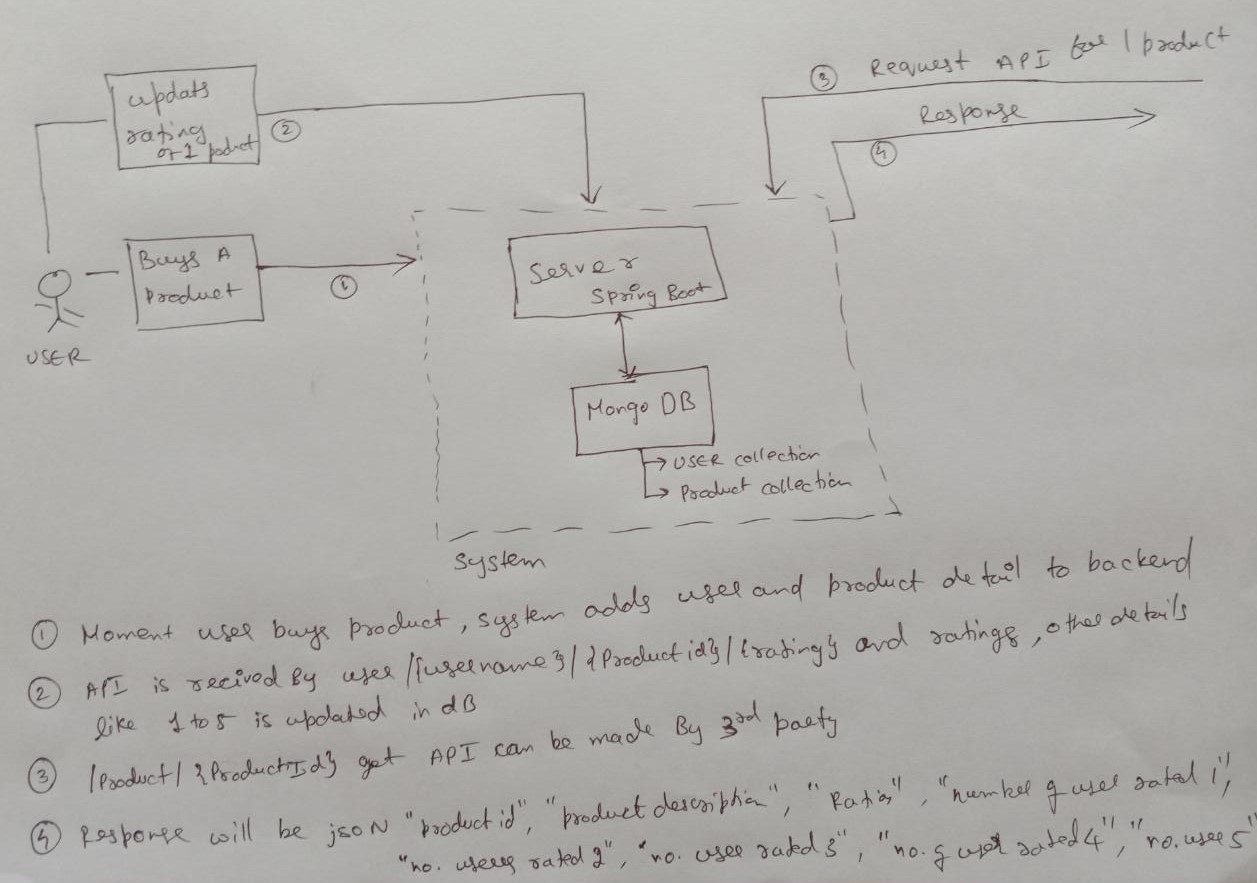 ③ Request API for 1 product
Response
④
updats
rating
of 1 podnct
②
Buys A
Product
①
USER
Server
Spring Boot
Mongo DB
→ USER collection
→ Product collection
System
① Moment user buys product, system adds user and product detail to backend
② API is recived By user /{username}/{Productid}/{rating} and ratings, other details
like 1 to 5 is updated in dB
③ /Product/{ProductId} get API can be made By 3rd party
④ Response will be jsoN "product id", "product description", "Ratig", "number of user rated 1",
"no. users rated 2", "no. user rated 3", "no. of user rated 4", "no. user 5"